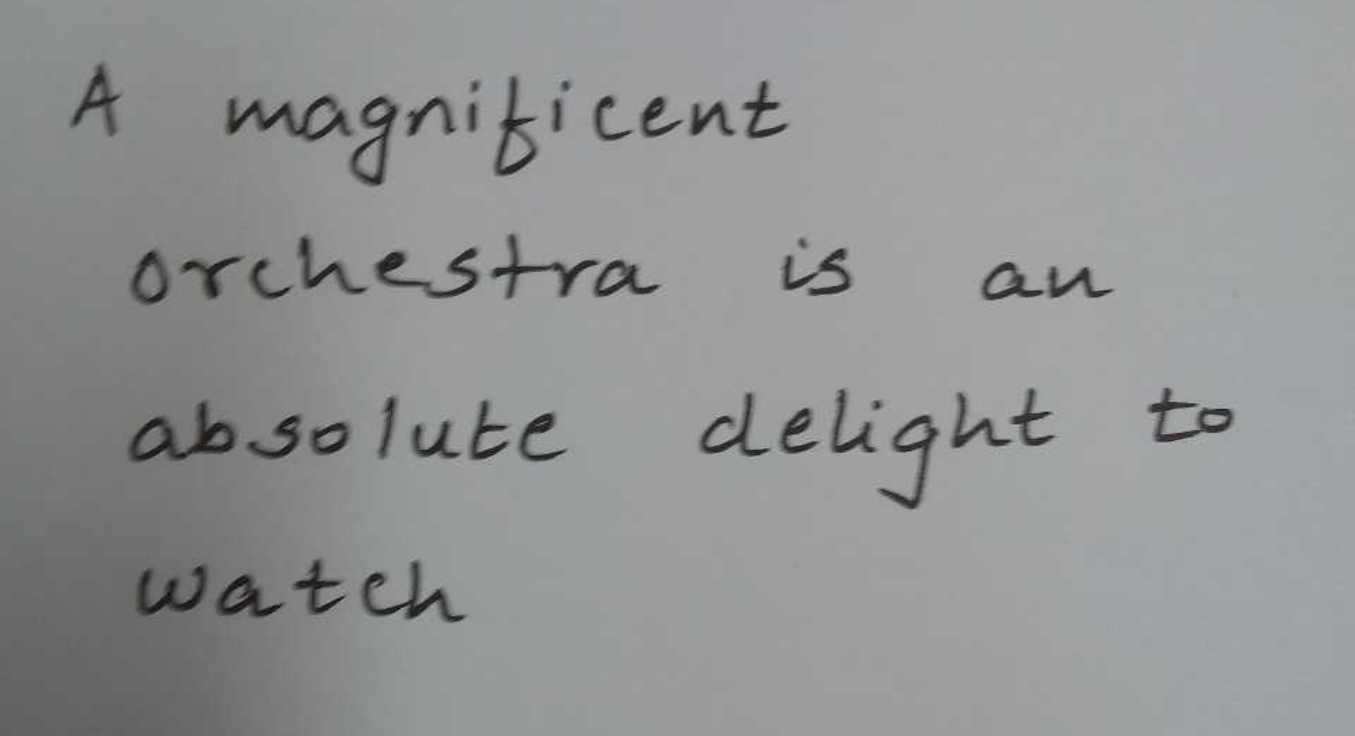 A magnificent
orchestra is an
absolute delight to
watch